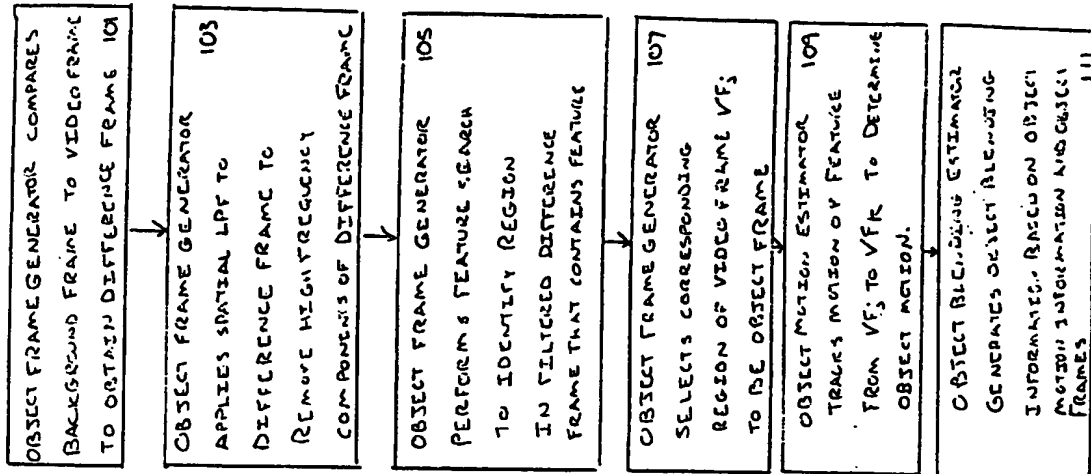 OBJECT FRAME GENERATOR COMPARES
BACKGROUND FRAME TO VIDEO FRAME
TO OBTAIN DIFFERENCE FRAME 101
OBJECT FRAME GENERATOR 103
APPLIES SPATIAL LPF TO
DIFFERENCE FRAME TO
REMOVE HIGH FREQUENCY
COMPONENTS OF DIFFERENCE FRAME
OBJECT FRAME GENERATOR 105
PERFORMS FEATURE SEARCH
TO IDENTIFY REGION
IN FILTERED DIFFERENCE
FRAME THAT CONTAINS FEATURE
OBJECT FRAME GENERATOR 107
SELECTS CORRESPONDING
REGION OF VIDEO FRAME VFj
TO BE OBJECT FRAME
OBJECT MOTION ESTIMATOR 109
TRACKS MOTION OF FEATURE
FROM VFj TO VFK TO DETERMINE
OBJECT MOTION.
OBJECT BLENDING ESTIMATOR
GENERATES OBJECT BLENDING
INFORMATION BASED ON OBJECT
MOTION INFORMATION AND OBJECT
FRAMES 111